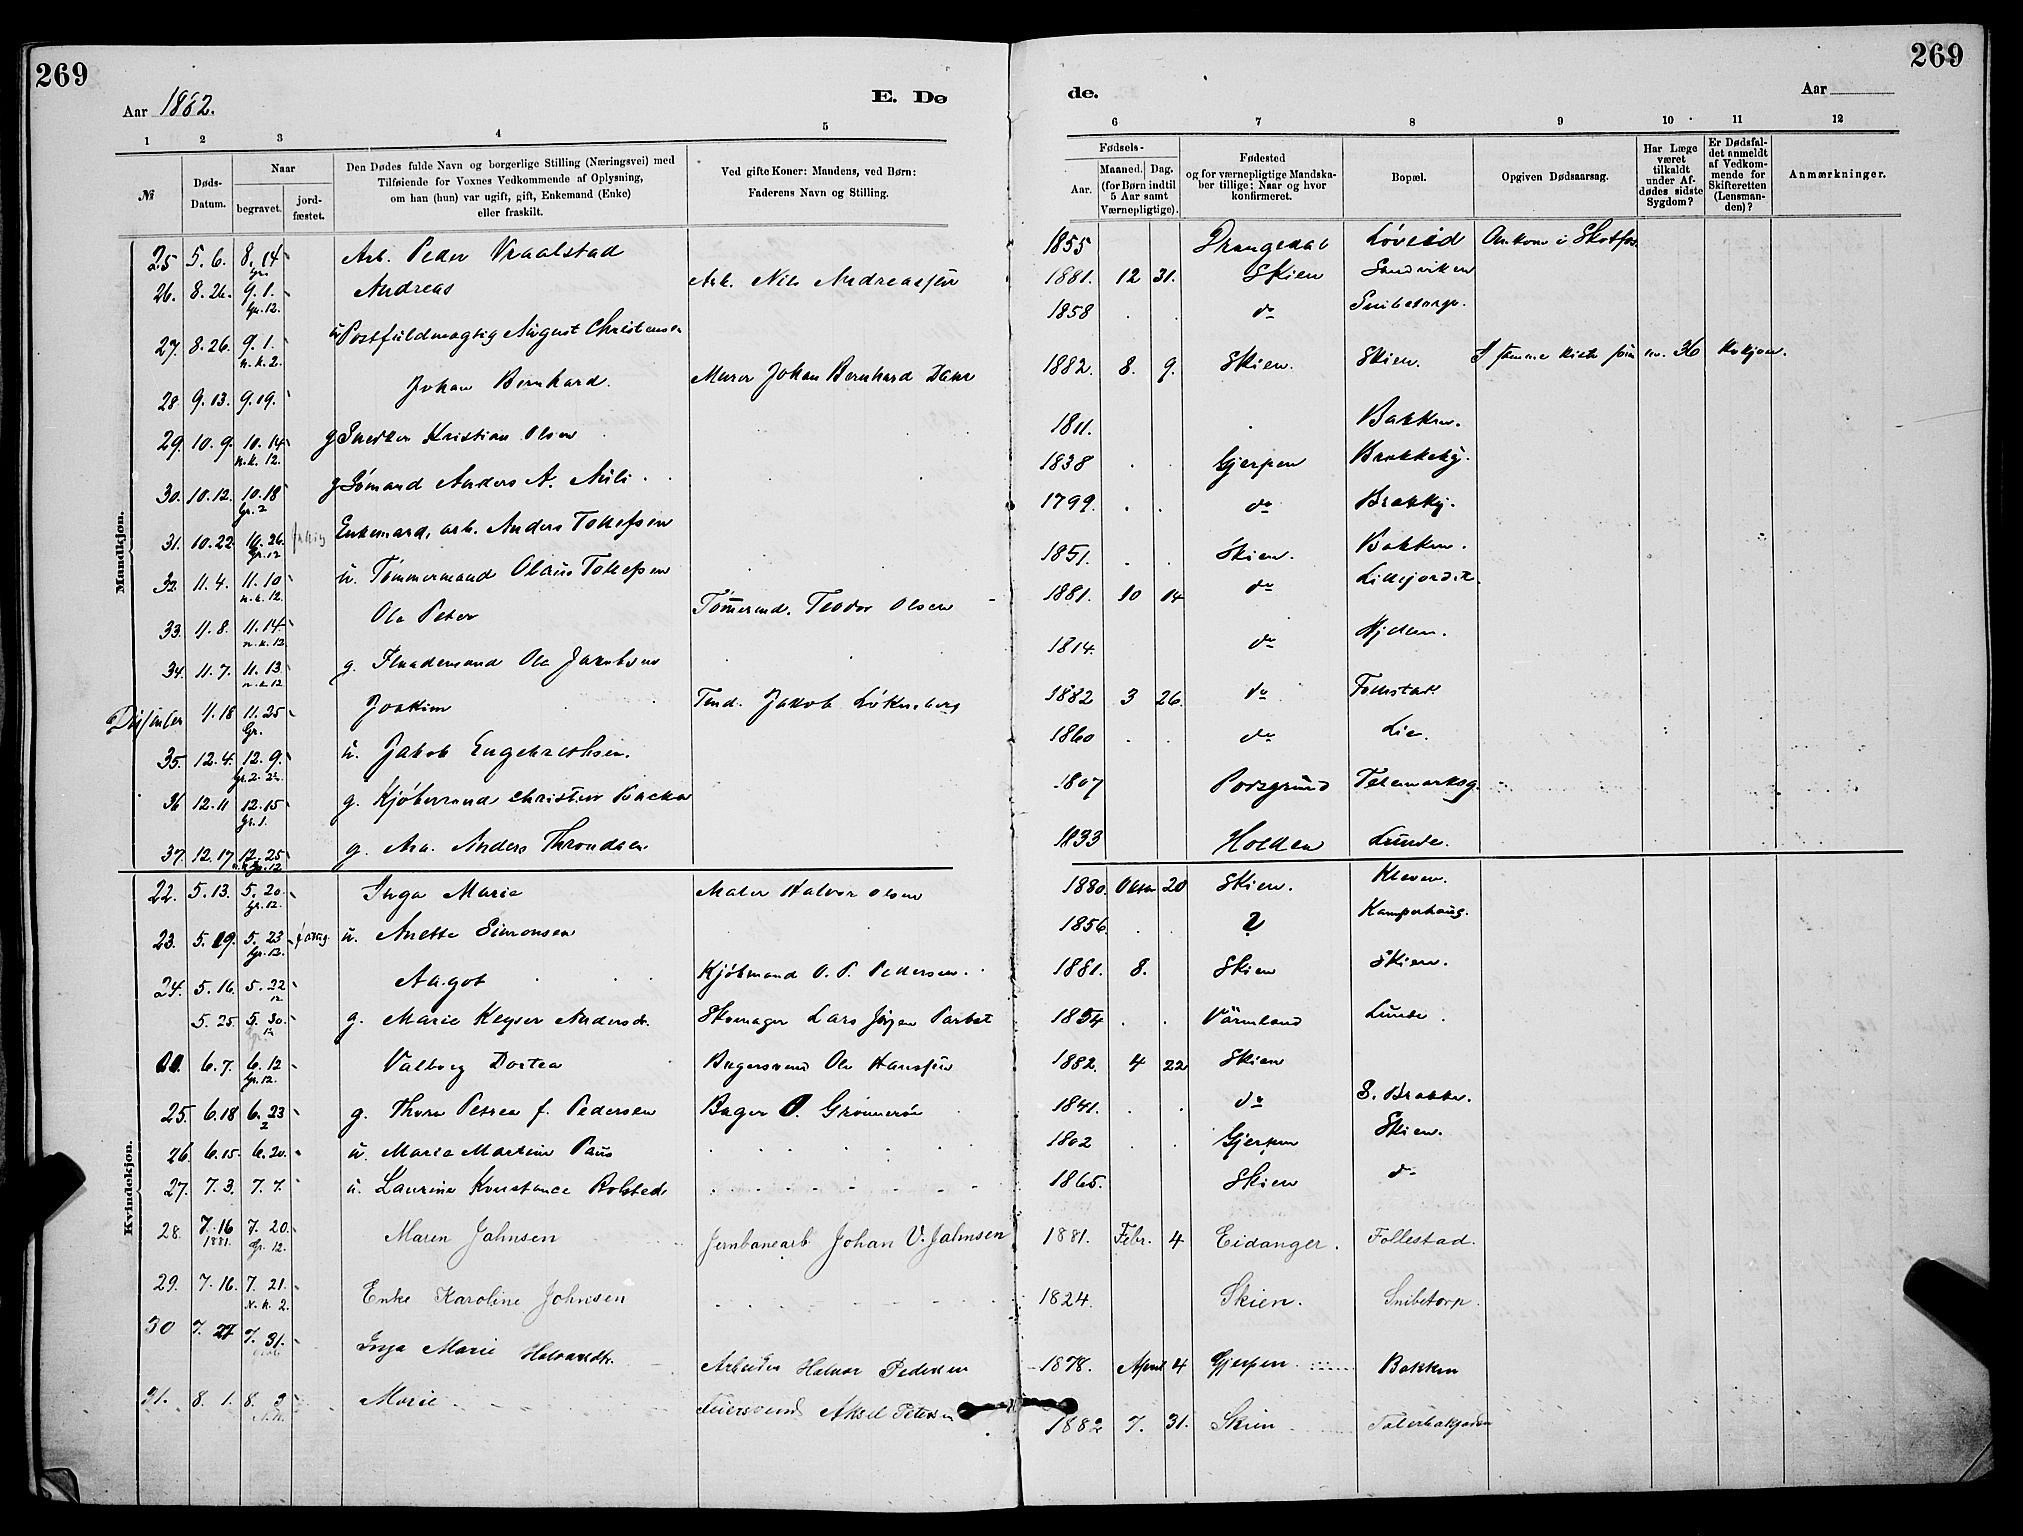 269
269
Aar 1882.
E. Dø
de.
Aar
1 2 3 4 5
6 7 8 9 10 11 12
№
Døds-Datum.
Naar
begravet.
jord-fæstet.
Den Dødes fulde Navn og borgerlige Stilling (Næringsvei) med
Tilføiende for Voxnes Vedkommende af Oplysning,
om han (hun) var ugift, gift, Enkemand (Enke)
eller fraskilt.
Ved gifte Koner: Mandens, ved Børn:
Faderens Navn og Stilling.
Fødsels-
Aar.
Maaned. Dag.
(for Børn indtil
5 Aar samt
Værnepligtige).
Fødested
og for værnepligtige Mandska-
ber tillige: Naar og hvor
konfirmeret.
Bopæl.
Opgiven Dødsaarsag.
Har Læge
været
tilkaldt
under Af-
dødes sidste
Sygdom?
Er Dødsfal-
det anmeldt
af Vedkom-
mende for
Skifteretten
(Lensman-
den)?
Anmærkninger.
Mandkjøn.
25 5.6. 8.14 Gr. Arb. Peder Vraalstad 1855 Drangedal Løveid Omkom i Skotfos
26. 8.26. 9.1. Gr. 12. Andreas Arb. Nils Andreassen 1881. 12 31. Skien Sandviken
27. 8.26. 9.1. n.k.2. u. Postfuldmægtig August Christensen 1858 do Snibetorp.
28 9.13. 9.19. Johan Bernhard. Murer Johan Bernhard 1882. 8. 9. Skien. Skien. I samme Kiste som no. 36
29. 10.9. 10.14 n.k.12. g Snedker Kristian Olsen 1811. Bakken.
30. 10.12. 10.18 Gr. 2 g Sömand Anders A. 1838 Gjerpen
31. 10.22. 10.26. Gr. 12 Enkemand, arb. Anders Tollefsen 1799. do
32. 11.4. 11.10 n.k.12. u. Tømmermand Olaus Tollefsen 1851. Skien. Bakken.
33. 11.8. 11.14 n.k.12 Ole Peter Tømmermd. Teodor Olsen 1881. 10 14 do
34. 11.7. 11.13 n.k.12 g. Ole Jacobsen 1814. do Hjellen.
Dissenter 11.18 11.25 Gr. Joakim Jakob 1882 3 26. do Follestad
35. 12.4. 12.9. Gr. 2. u. Jakob Engebrethsen. 1860 do Lie.
36 12.11 12.15 Gr. 1. g. Kjøbmand Christen 1807 Porsgrund Telemarksg.
37. 12.17 12.25 g. Arb. Anders Throndsen 1833 Holden Lunde.
Kvindekjøn.
22. 5.13. 5.20. Gr. 12. Inga Marie Maler Halvor Olsen 1880. 20 Skien. Kleven.
23. 5.19. 5.23 Gr. 12. u. Anette Simonsen 1856. ? Kamperhaug.
24. 5.16. 5.22 12 Aagot Kjøbmand O. P. Pedersen. 1881. 8. Skien Skien.
5.25. 5.30. 12 g. Marie Keyser Andersdr. Skomager Lars Jörgen 1854 Värmland Lunde.
6.7. 6.12 Gr. 12. Valborg Dortea Bagersvend Ole Hanssen 1882. 4 22 Skien
25. 6.18 6.23 2 g. Thora Petrea f. Pedersen Bager 1841. do
26. 6.15. 6.20. u. Maria Martine Paus 1802 Gjerpen Skien.
27. 7.3. 7.7. u. Laurine Konstance 1865. Skien do
28. 7.16 1881. 7.20. Gr. 12. Maren Jahnsen Jernbanearb Johan V. Jahnsen 1881. Febr. 4 Eidanger. Follestad.
29. 7.16. 7.21. N.K. 2. Enke Karoline Johnsen 1824. Skien. Snibetorp.
30 7.27 7.31. Inga Marie Halvorsdtr. Arbeider Halvor Pedersen 1878. April 4 Gjerpen Bakken
31. 8.1. 8.3 Marie Aksel Petersen 1882 7. 31. Skien